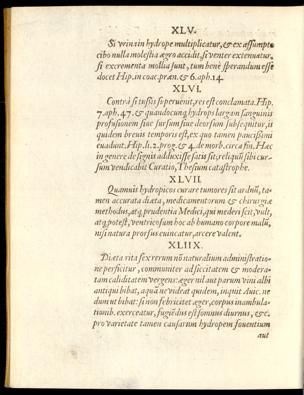 XLV.
Si urina in hydrope multiplicatur, & ex assumpto
cibo nulla molestia ægro accidit, si venter extenuatur,
si excrementa mollia sunt, tum bene sperandum esse
docet Hip. in coac. præn. & 6. aph. 14.
XLVI.
Contrà si tussis superuenit, res est conclamata. Hip.
7. aph. 47. & quandocunq; hydrops largam sanguinis
profusionem siue sursum siue deorsum subsequitur, is
quidem breuis temporis est, ex quo tamen paucissimi
euadunt. Hip. li. 2. prog. & 4. de morb. circa fin. Hæc
in genere de signis adduxisse satis sit, reliquū sibi cur-
sum vendicabit Curatio, Thesium catastrophe.
XLVII.
Quamuis hydropicos curare tumores sit arduū, ta-
men accurata diæta, medicamentorum & chirurgiæ
methodus, atq; prudentia Medici, qui mederi scit, vult,
atq; potest, ventricosum hoc ab humano corpore malū,
nisi natura prorsus euincatur, arcere valent.
XLIIX.
Diæta rita sex rerum nō naturalium administratio-
ne perficitur, communiter ad siccitatem & modera-
tam caliditatem vergens: æger nil aut parum vini albi
antiqui bibat, aquā ne videat quidem, inquit Auic. ne
dum ut bibat: si non febricitet æger, corpus inambula-
tionib. exerceatur, fugiēdus est somnus diurnus, &c.
pro varietate tamen causarum hydropem fouentium
aut